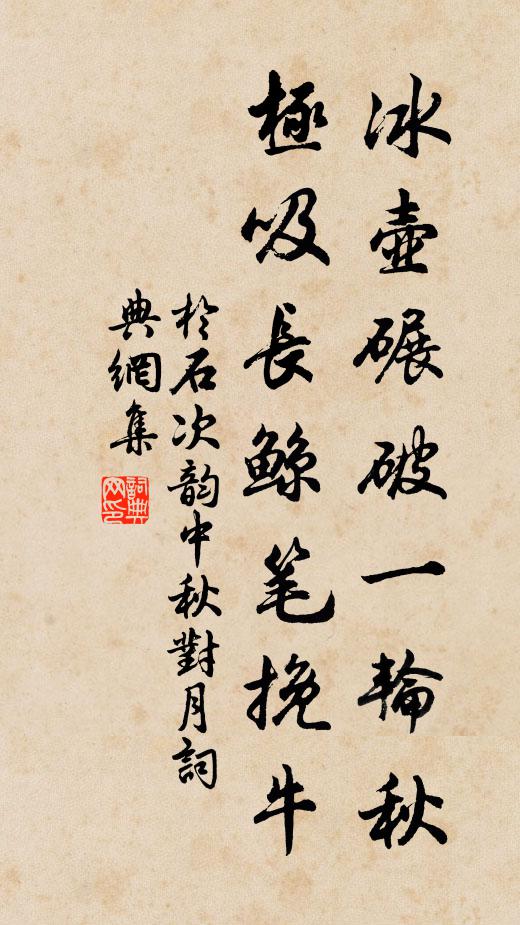 冰壺碾破一輪秋
極吸長鲸笔挽牛
於石次韵中秋對月詞
典網集
詞典网印